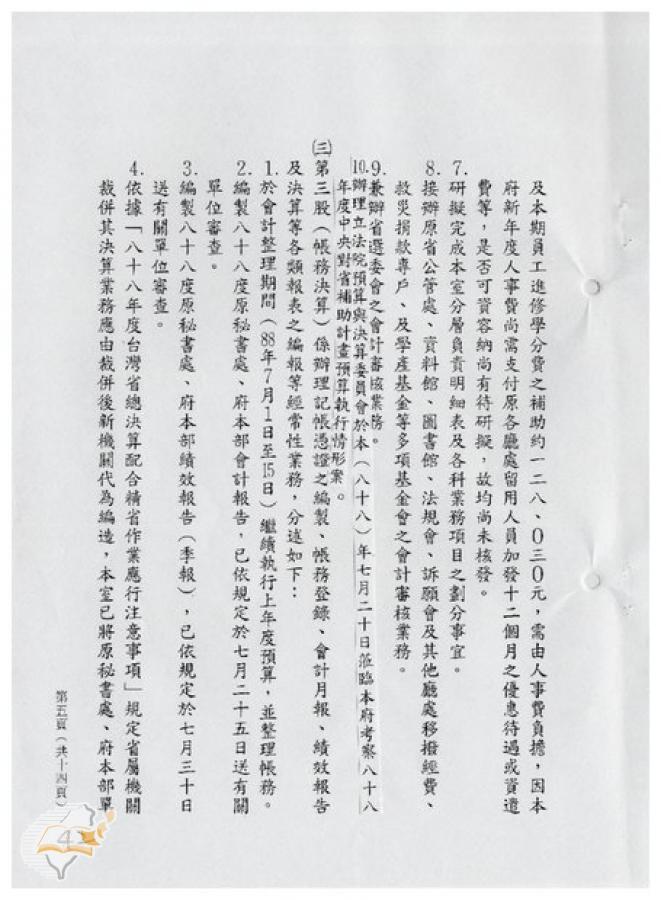 及本期員工進修學分費之補助約一二八、０三０元，需由人事費負擔，因本
府新年度人事費尚需支付原各廳處留用人員加發十二個月之優惠待遇或資遣
費等，是否可資容納尚有待研擬，故均尚未核發。
7.研擬完成本室分層負責明細表及各科業務項目之劃分事宜。
8.接辦原省公管處、資料館、圖書館、法規會、訴願會及其他廳處移撥經費、
救災捐款專戶、及學產基金等多項基金會之會計審核業務。
9.兼辦省選委會之會計審核業務。
10.辦理立法院預算與決算委員會於本（八十八）年七月二十日蒞臨本府考察八十八
年度中央對省補助計畫預算執行情形案。
㈢第三股（帳務決算）係辦理記帳憑證之編製、帳務登錄、會計月報、績效報告
及決算等各類報表之編報等經常性業務，分述如下：
1.於會計整理期間（88年7月1日至15日）繼續執行上年度預算，並整理帳務。
2.編製八十八度原秘書處、府本部會計報告，已依規定於七月二十五日送有關
單位審查。
3.編製八十八度原秘書處、府本部績效報告（季報），已依規定於七月三十日
送有關單位審查。
4.依據「八十八年度台灣省總決算配合精省作業應行注意事項」規定省屬機關
裁併其決算業務應由裁併後新機關代為編造，本室已將原秘書處、府本部單
第五頁（共十四頁）
4